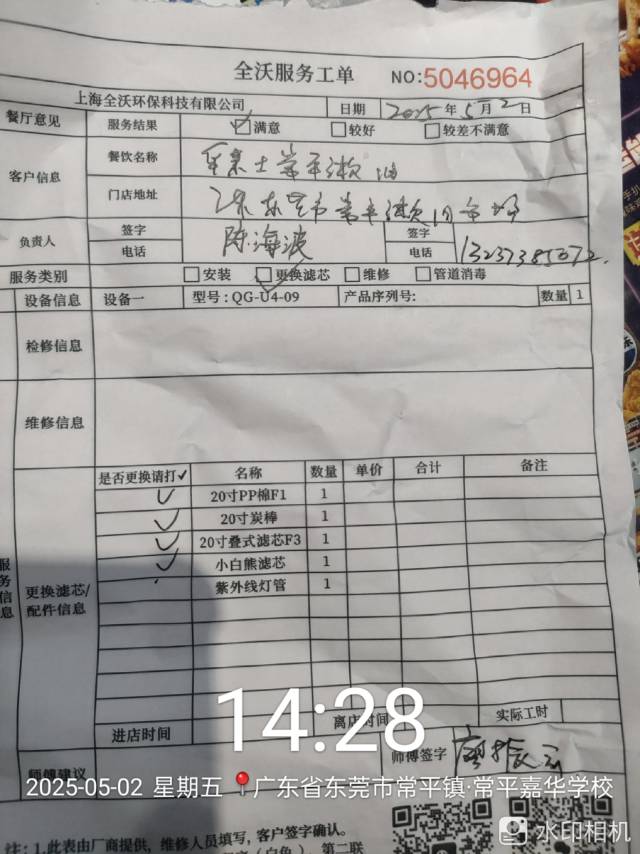 全沃服务工单 NO:5046964
上海全沃环保科技有限公司 日期 2025年5月2日
餐厅意见 服务结果 ☑满意 □较好 □较差不满意
客户信息 餐饮名称
门店地址
负责人 签字 陈海波 签字
电话 电话 13237385072
服务类别 □安装 ☑更换滤芯 □维修 □管道消毒
设备信息 设备一 型号:QG-U4-09 产品序列号: 数量 1
检修信息
维修信息
是否更换请打✓ 名称 数量 单价 合计 备注
✓ 20寸PP棉F1 1
✓ 20寸炭棒 1
✓ 20寸叠式滤芯F3 1
✓ 小白熊滤芯 1
紫外线灯管 1
更换滤芯/
配件信息
14:28
进店时间 离店时间 实际工时
师傅签字
师傅建议
2025-05-02 星期五 广东省东莞市常平镇·常平嘉华学校
注:1.此表由厂商提供,维修人员填写,客户签字确认。
水印相机